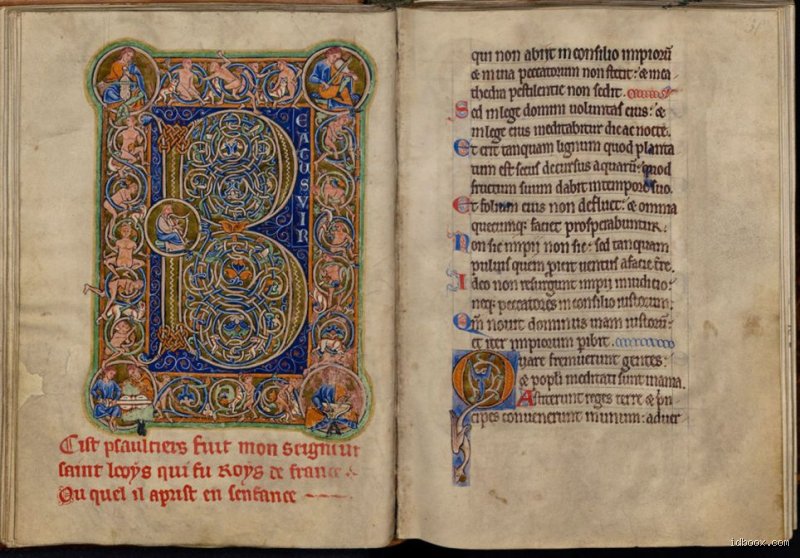 BEATUS VIR
Cist psaultiers fuit mon seigneur
saint looys qui fu Roys de france
Ou quel il aprist en senfance
qui non abiit in consilio impiorū
& in uia peccatorum non stetit: & in ca-
thedra pestilentie non sedit.
Sed in lege domini uoluntas eius: &
in lege eius meditabitur die ac nocte.
Et erit tanquam lignum quod planta
tum est secus decursus aquarū: quod
fructum suum dabit in tempore suo.
Et folium eius non defluet: & omnia
quecumq; faciet prosperabuntur.
Non sic impii non sic: sed tanquam
puluis quem proicit uentus a facie tr̄e.
Ideo non resurgunt impii in iudicio:
neq; peccatores in consilio iustorum.
Qm̄ nouit dominus uiam iustorū:
et iter impiorum peribit.
Quare fremuerunt gentes:
& popl̄i meditati sunt inania.
Astiterunt reges terre & prin
cipes conuenerunt in unum: aduer
idboox.com